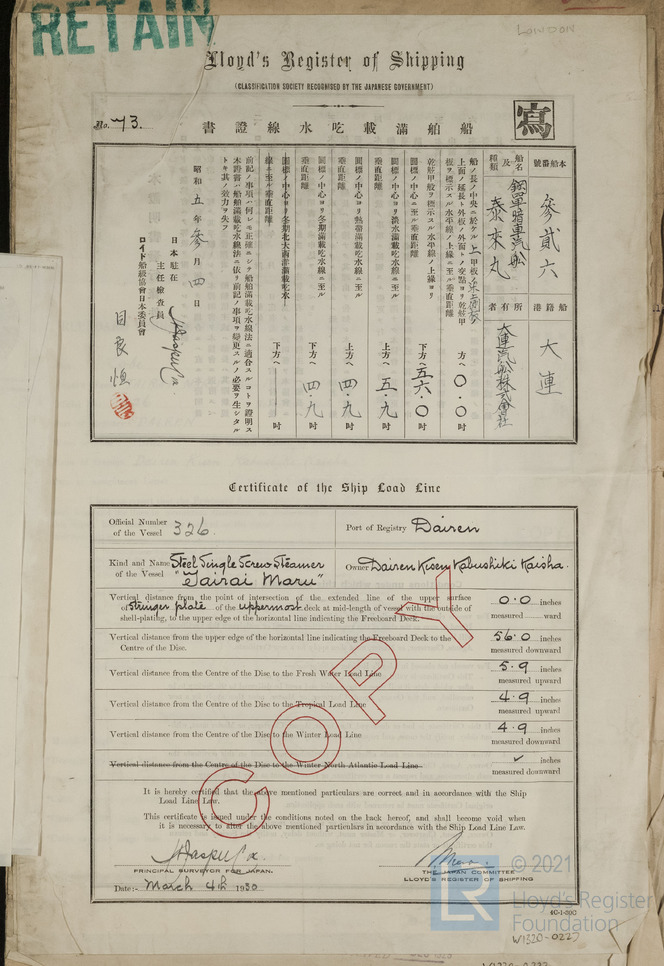 RETAIN
LONDON
Lloyd's Register of Shipping
(CLASSIFICATION SOCIETY RECOGNISED BY THE JAPANESE GOVERNMENT)
No. 73.
書證線水吃載滿舶船
寫
本船番號
參貳六
船籍港
大連
船名及種類
鋼單暗車汽船
泰來丸
所有者
大連汽船株式會社
方へ 〇・〇 吋
下方へ 五六・〇 吋
圓標ノ中心ヨリ淡水滿載吃水線ニ至ル垂直距離
上方へ 五・九 吋
圓標ノ中心ヨリ熱帶滿載吃水線ニ至ル垂直距離
上方へ 四・九 吋
圓標ノ中心ヨリ冬期滿載吃水線ニ至ル垂直距離
下方へ 四・九 吋
圓標ノ中心ヨリ冬期北大西洋滿載吃水線ニ至ル垂直距離
下方へ 吋
昭和五年參月四日
日本駐在
主任檢查員
ロイド船級協會日本委員會
Certificate of the Ship Load Line
Official Number of the Vessel 326.
Port of Registry Dairen
Kind and Name of the Vessel Steel Single Screw Steamer "Tairai Maru"
Owner Dairen Kisen Kabushiki Kaisha.
Vertical distance from the point of intersection of the extended line of the upper surface
of stringer plate of the uppermost deck at mid-length of vessel with the outside of
shell-plating, to the upper edge of the horizontal line indicating the Freeboard Deck.
0.0 inches
measured ward
Vertical distance from the upper edge of the horizontal line indicating the Freeboard Deck to the
Centre of the Disc.
56.0 inches
measured downward
Vertical distance from the Centre of the Disc to the Fresh Water Load Line
5.9 inches
measured upward
Vertical distance from the Centre of the Disc to the Tropical Load Line
4.9 inches
measured upward
Vertical distance from the Centre of the Disc to the Winter Load Line
4.9 inches
measured downward
Vertical distance from the Centre of the Disc to the Winter North Atlantic Load Line
✓ inches
measured downward
COPY
It is hereby certified that the above mentioned particulars are correct and in accordance with the Ship
Load Line Law.
This certificate is issued under the conditions noted on the back hereof, and shall become void when
it is necessary to alter the above mentioned particulars in accordance with the Ship Load Line Law.
PRINCIPAL SURVEYOR FOR JAPAN.
THE JAPAN COMMITTEE
LLOYD'S REGISTER OF SHIPPING
Date:- March 4th 1930
© 2021
LR
Lloyd's Register
Foundation
W1320-0227